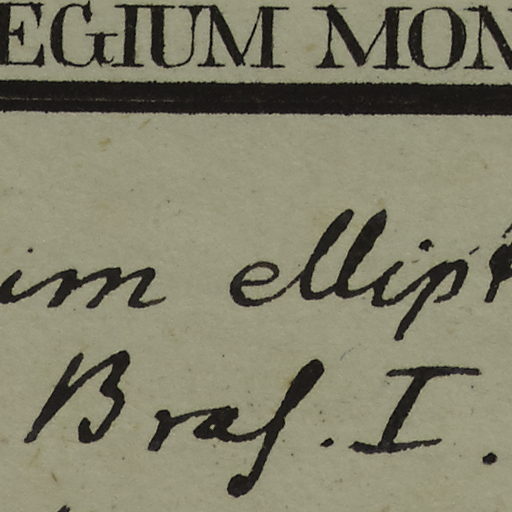 EGIUM MON
im ellip
Bras. I.